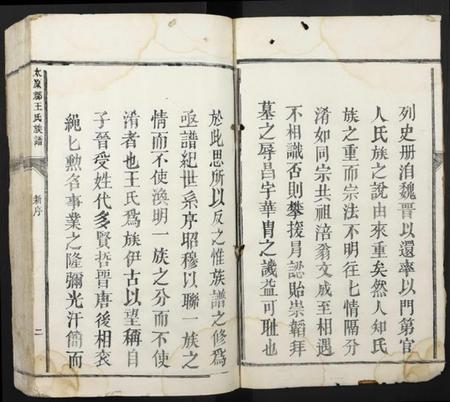 列史册洎魏晉以還率以門第官
人氏族之說由來重矣然人知氏
族之重而宗法不明往匕情隔分
淆如同宗共祖涪翁文成至相遇
不相識否則攀援冐認貽崇韜拜
墓之辱昌宇華胄之譏益可恥也
於此思所以反之惟族譜之修爲
亟譜紀世系序昭穆以聯一族之
情而不使渙明一族之分而不使
淆者也王氏爲族伊古以望稱自
子晉受姓代多賢哲晉唐後相衮
繩匕勲名事業之隆彌光汗簡而
太原郡王氏族譜
新序
二